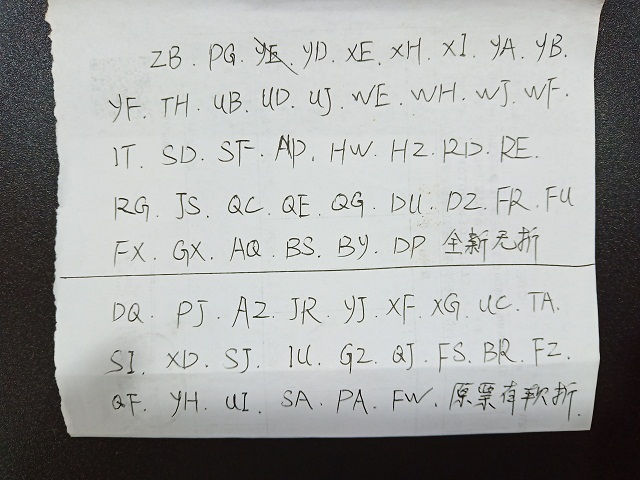 ZB. PG. YE. YD. XE. XH. XI. YA. YB.
YF. TH. UB. UD. UJ. WE. WH. WJ. WF.
IT. SD. SF. AD. HW. HZ. RD. RE.
RG. JS. QC. QE. QG. DU. DZ. FR. FU
FX. GX. AQ. BS. BY. DP 全新无折
DQ. PJ. AZ. JR. YJ. XF. XG. UC. TA.
SI. XD. SJ. IU. GZ. QJ. FS. BR. FZ.
QF. YH. UI. SA. PA. FW. 原票有软折.